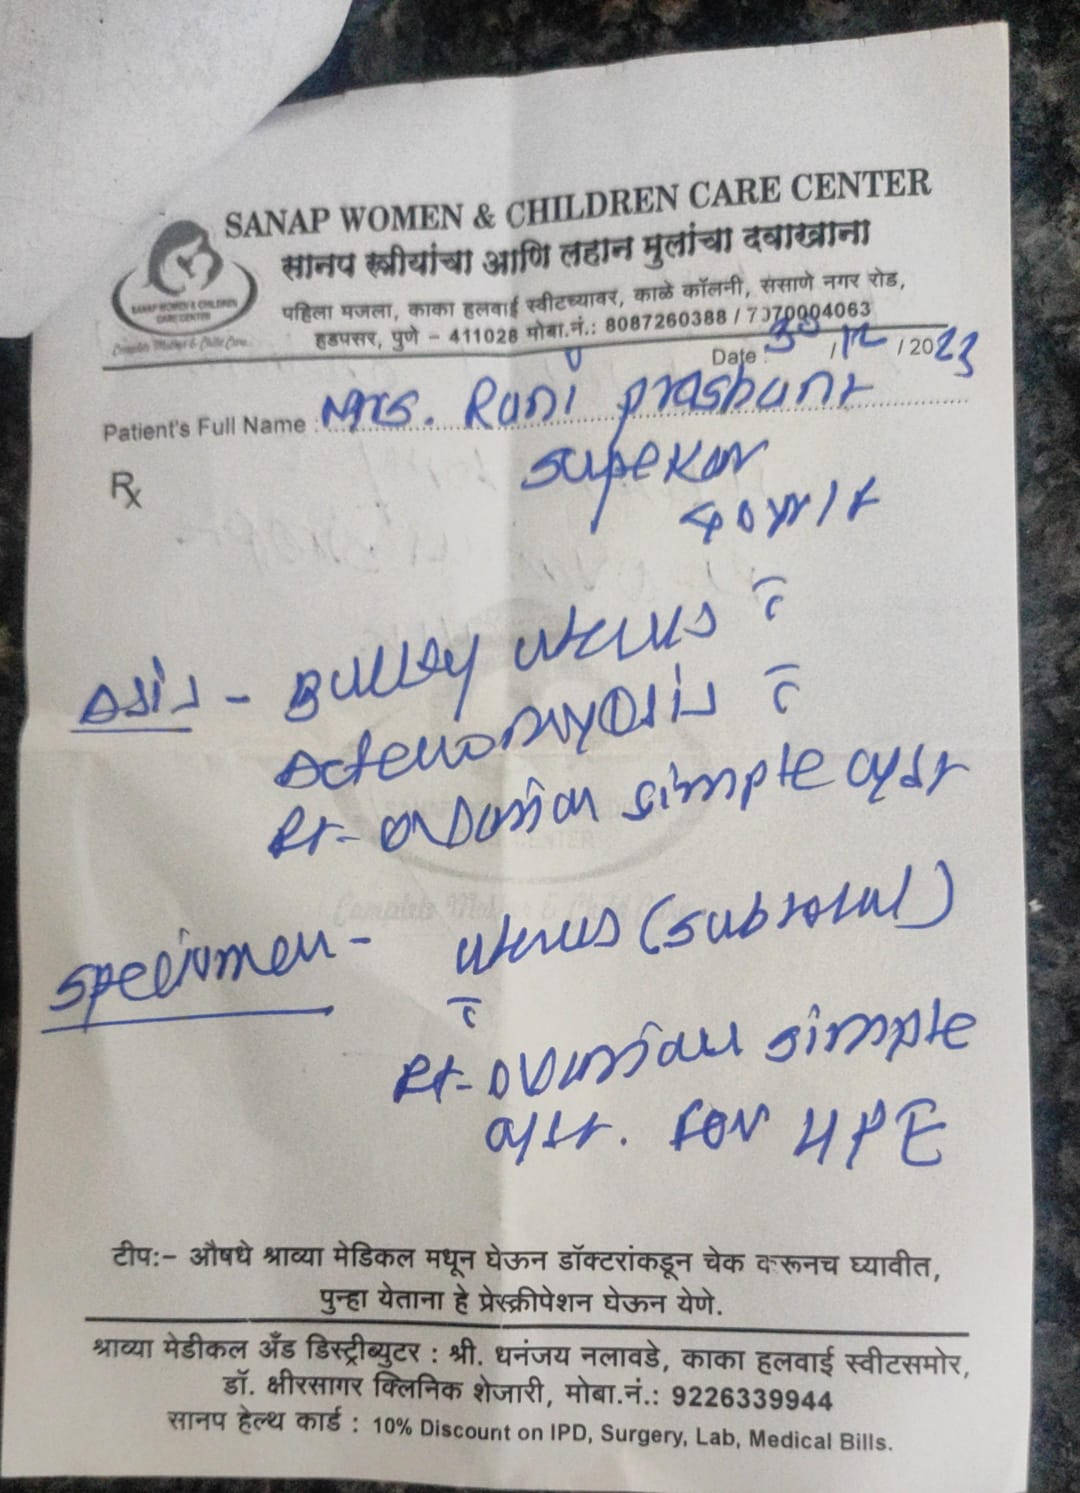 SANAP WOMEN & CHILDREN CARE CENTER
सानप स्त्रीयांचा आणि लहान मुलांचा दवाखाना
SANAP WOMEN & CHILDREN
CARE CENTER
Complete Mother & Child Care
पहिला मजला, काका हलवाई स्वीटच्यावर, काळे कॉलनी, ससाणे नगर रोड,
हडपसर, पुणे - 411028 मोबा.नं.: 8087260388 / 7070004063
Date : 30 / 12 / 2023
Patient's Full Name : Mrs. Rani prashant
supekar
40 yr/f
Rx
Bulky uterus c̄
Adenomyosis c̄
Rt- ovarian simple cyst
specimen - uterus (subtotal)
c̄
Rt- ovarian simple
cyst. for HPE
टीप:- औषधे श्राव्या मेडिकल मधून घेऊन डॉक्टरांकडून चेक करूनच घ्यावीत,
पुन्हा येताना हे प्रेस्क्रीपेशन घेऊन येणे.
श्राव्या मेडीकल अँड डिस्ट्रीब्युटर : श्री. धनंजय नलावडे, काका हलवाई स्वीटसमोर,
डॉ. क्षीरसागर क्लिनिक शेजारी, मोबा.नं.: 9226339944
सानप हेल्थ कार्ड : 10% Discount on IPD, Surgery, Lab, Medical Bills.